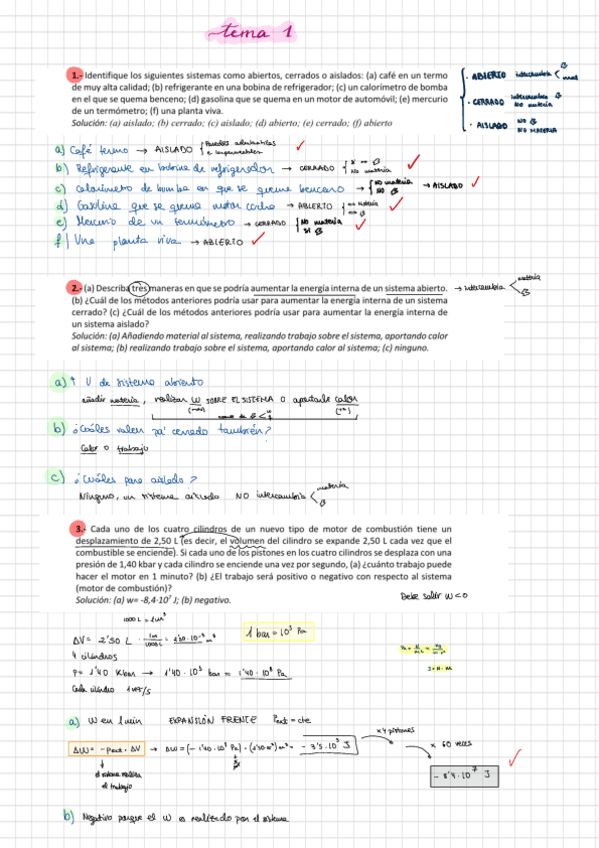 tema 1
1.- Identifique los siguientes sistemas como abiertos, cerrados o aislados: (a) café en un termo
de muy alta calidad; (b) refrigerante en una bobina de refrigerador; (c) un calorímetro de bomba
en el que se quema benceno; (d) gasolina que se quema en un motor de automóvil; (e) mercurio
de un termómetro; (f) una planta viva.
Solución: (a) aislado; (b) cerrado; (c) aislado; (d) abierto; (e) cerrado; (f) abierto
· ABIERTO intercambia
· CERRADO intercambia E no materia
· AISLADO NO E NO MATERIA
a) Café termo → AISLADO { Paredes adiabáticas e impermeables
b) Refrigerante en bobina de refrigerador → CERRADO { No materia
c) Calorímetro de bomba en que se quema benceno → { No materia NO E → AISLADO
d) Gasolina que se quema motor coche → ABIERTO
e) Mercurio de un termómetro → CERRADO { No materia sí E
f) Una planta viva → ABIERTO
2.- (a) Describa tres maneras en que se podría aumentar la energía interna de un sistema abierto. → intercambia < materia E
(b) ¿Cuál de los métodos anteriores podría usar para aumentar la energía interna de un sistema
cerrado? (c) ¿Cuál de los métodos anteriores podría usar para aumentar la energía interna de
un sistema aislado?
Solución: (a) Añadiendo material al sistema, realizando trabajo sobre el sistema, aportando calor
al sistema; (b) realizando trabajo sobre el sistema, aportando calor al sistema; (c) ninguno.
a) ↑ U de sistema abierto
añadir materia, realizar W SOBRE EL SISTEMA o aportarle calor
b) ¿Cuáles valen pa' cerrado también?
Calor o trabajo
c) ¿Cuáles para aislado?
Ninguno, un sistema aislado NO intercambia < materia E
3.- Cada uno de los cuatro cilindros de un nuevo tipo de motor de combustión tiene un
desplazamiento de 2,50 L (es decir, el volumen del cilindro se expande 2,50 L cada vez que el
combustible se enciende). Si cada uno de los pistones en los cuatro cilindros se desplaza con una
presión de 1,40 kbar y cada cilindro se enciende una vez por segundo, (a) ¿cuánto trabajo puede
hacer el motor en 1 minuto? (b) ¿El trabajo será positivo o negativo con respecto al sistema
(motor de combustión)?
Solución: (a) w= -8,4·10⁷ J; (b) negativo.
Debe salir W<0
1000 L = 1m³
ΔV= 2'50 L · 1m³/1000 L = 2'50·10⁻³ m³
1 bar = 10⁵ Pa
4 cilindros
P= 1'40 Kbar → 1'40·10³ bar = 1'40·10⁸ Pa
J = N·m
Cada cilindro 1 vez/s
a) W en 1 min EXPANSIÓN FRENTE Pext = cte
ΔW= -Pext·ΔV → ΔW = (-1'40·10⁸ Pa)·(2'50·10⁻³) m³ = -3'5·10⁵ J
x 4 pistones
x 60 veces
-8'4·10⁷ J
el sistema realiza
el trabajo
b) Negativo porque el W es realizado por el sistema